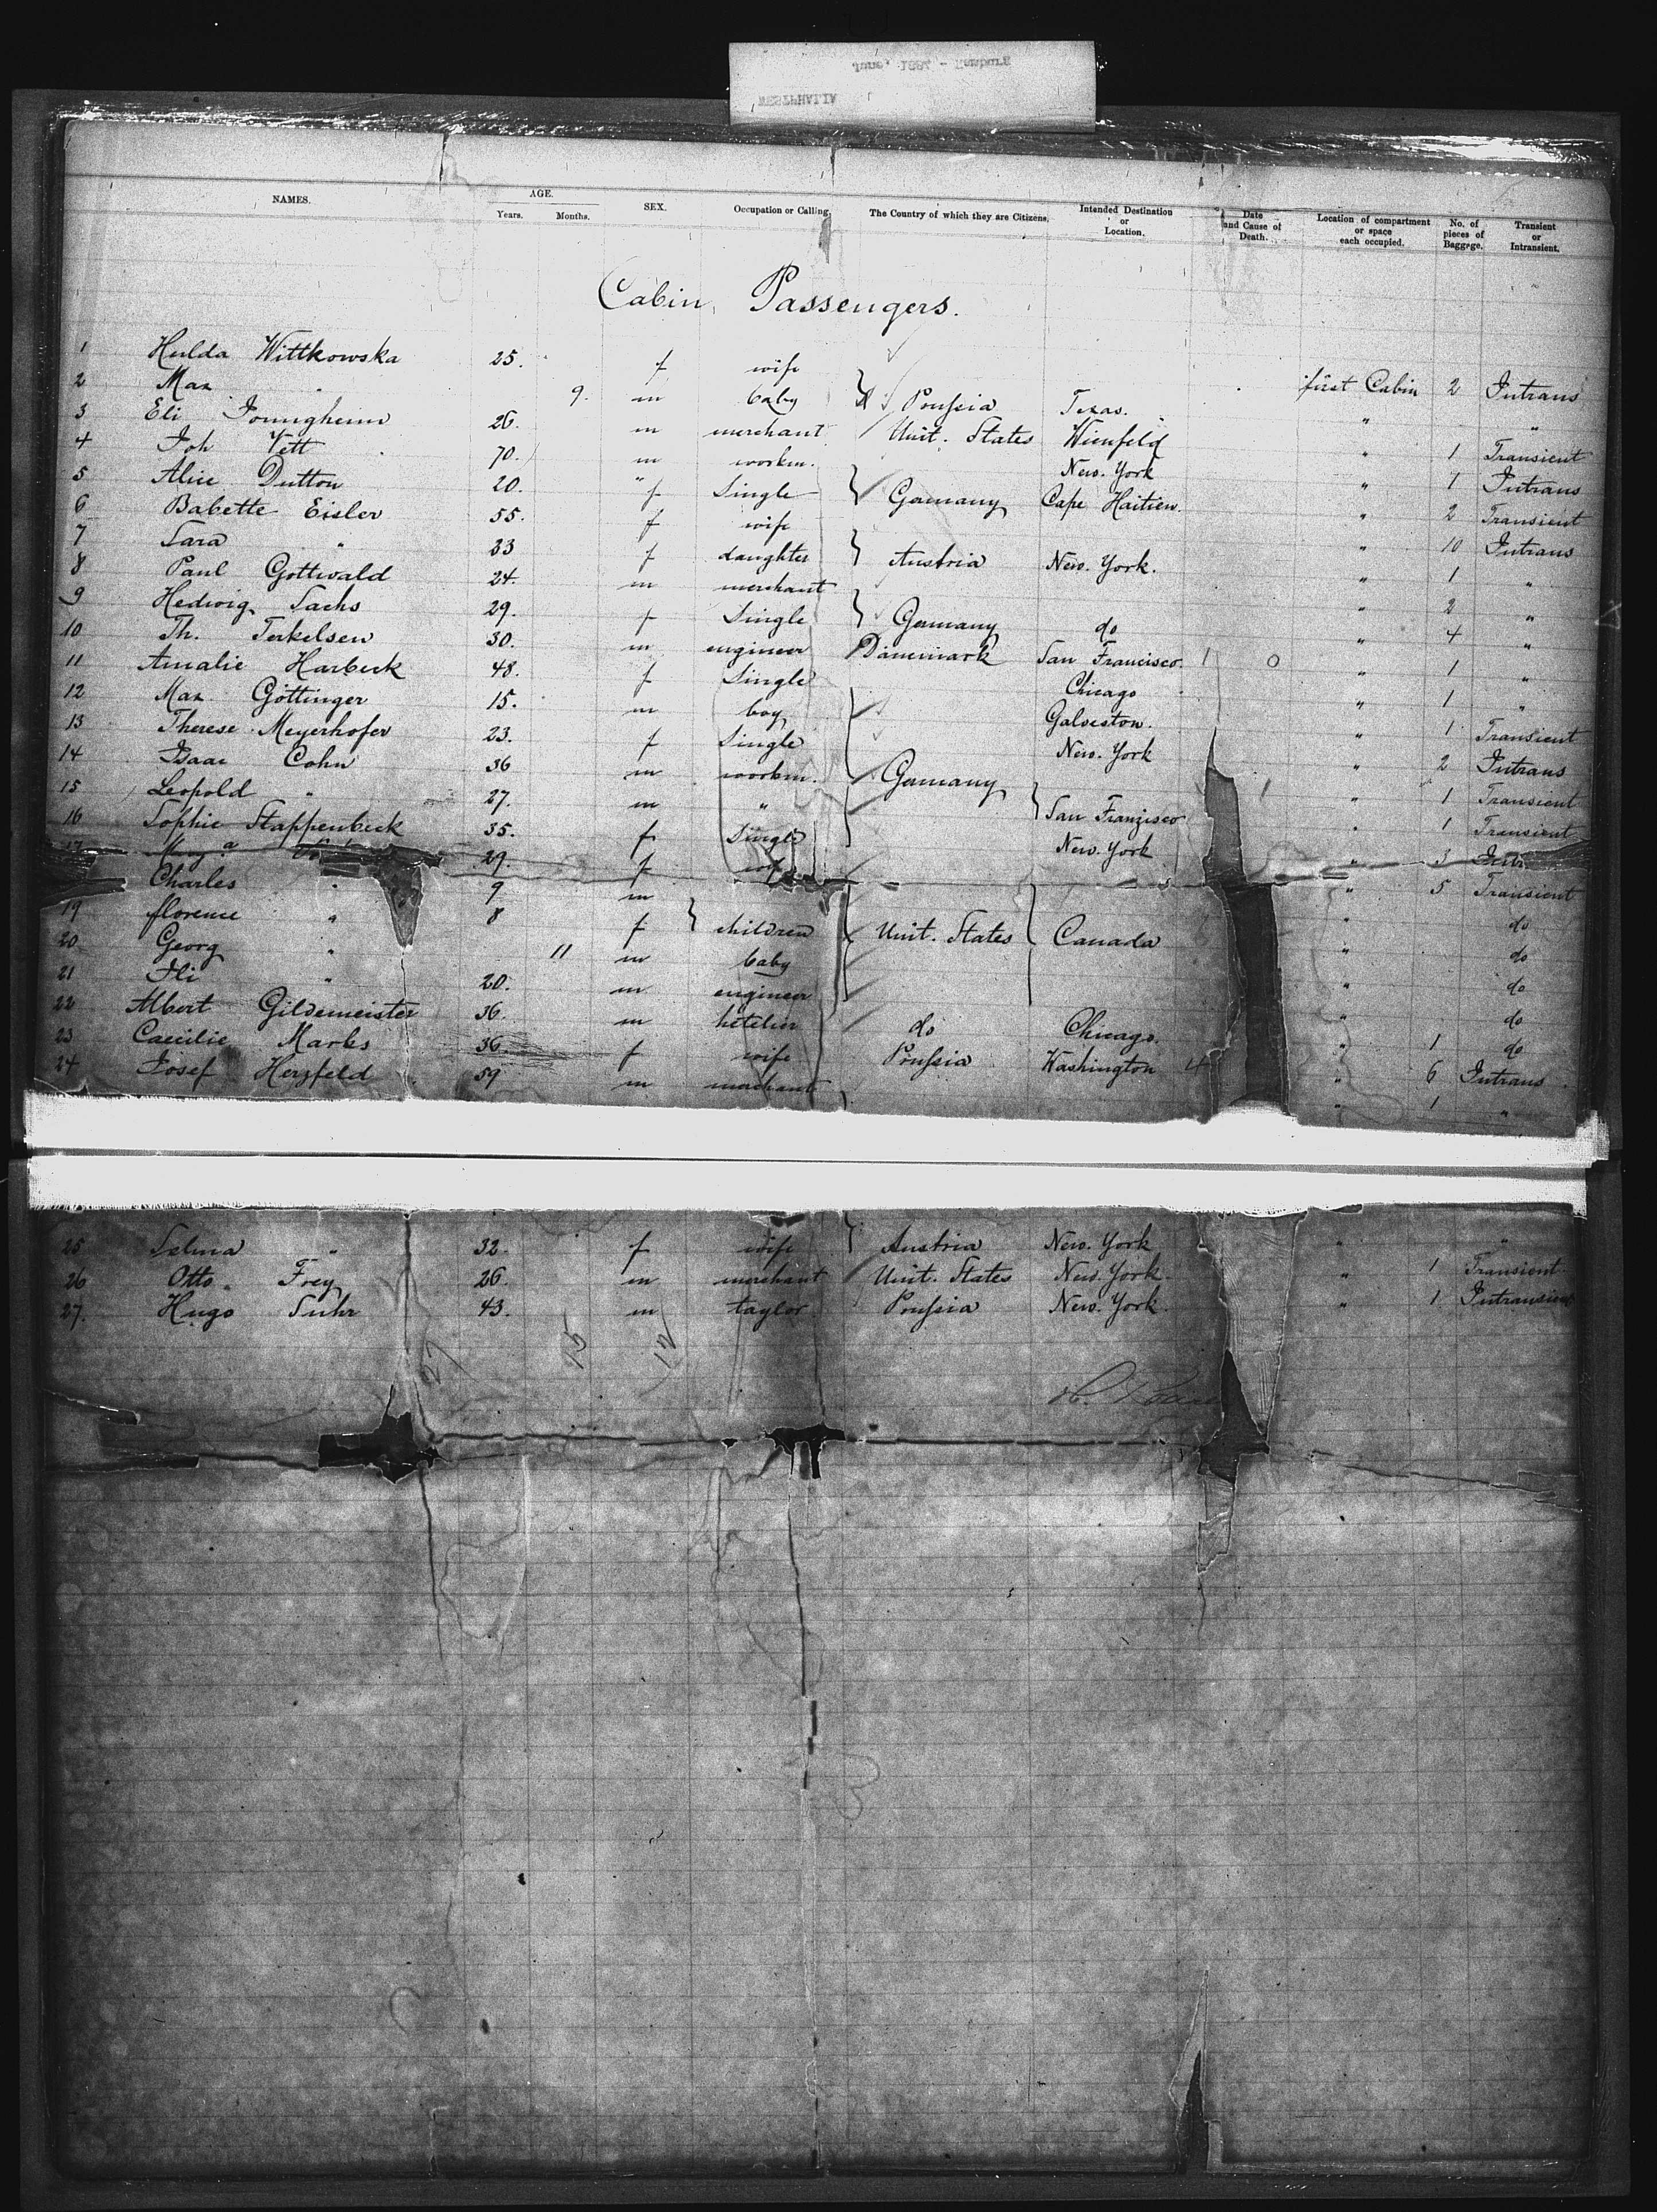 NAMES. AGE. Years. Months. SEX. Occupation or Calling. The Country of which they are Citizens. Intended Destination or Location. Date and Cause of Death. Location of compartment or space each occupied. No. of pieces of Baggage. Transient or Intransient.
Cabin Passengers.
1 Hulda Wittkowska 25. f wife first Cabin 2 Intrans
2 Max " 9. m baby Prussia Texas. " "
3 Eli 26. m merchant Unit. States Wienfeld " 1 Transient
4 Joh Vett 70. m workm. New. York " 1 Intrans
5 Alice Dutton 20. " f Single Germany Cape Haitien. " 2 Transient
6 Babette Eisler 55. f wife " 10 Intrans
7 Sara " 33 f daughter Austria New. York. " 1 "
8 Paul Gottwald 24. m merchant " 2 "
9 Hedwig Sachs 29. f Single Germany do " 4 "
10 Th. Terkelsen 30. m engineer Dänemark San Francisco. 1 0 " 1 "
11 Amalie Harbeck 48. f Single Chicago " 1 "
12 Max Göttinger 15. m boy Galveston. " 1 Transient
13 Therese Meyerhofer 23. f Single New. York " 2 Intrans
14 Isaac Cohn 36 m workm. Germany " 1 Transient
15 Leopold " 27. m " San Franzisco " 1 Transient
16 Sophie Stappenbeck 35. f Single New. York " 3 Intr
17 29. f " 5 Transient
Charles " 9 m " do
19 florence " 8 f children Unit. States Canada " do
20 Georg " 11 m baby " do
21 " 20. m engineer " do
22 Albert Gildemeister 36. m do Chicago. " 1 do
23 Caecilie Marks 36. f wife Prussia Washington 4 " 6 Intrans
24 Josef Herzfeld 59 m merchant " 1 "
25 Selma " 32. f wife Austria New. York " "
26 Otto Frey 26. m merchant Unit. States New. York. " 1 Transient.
27. Hugo Suhr 43. m taylor Prussia New. York. " 1 Intransient
27 15 12